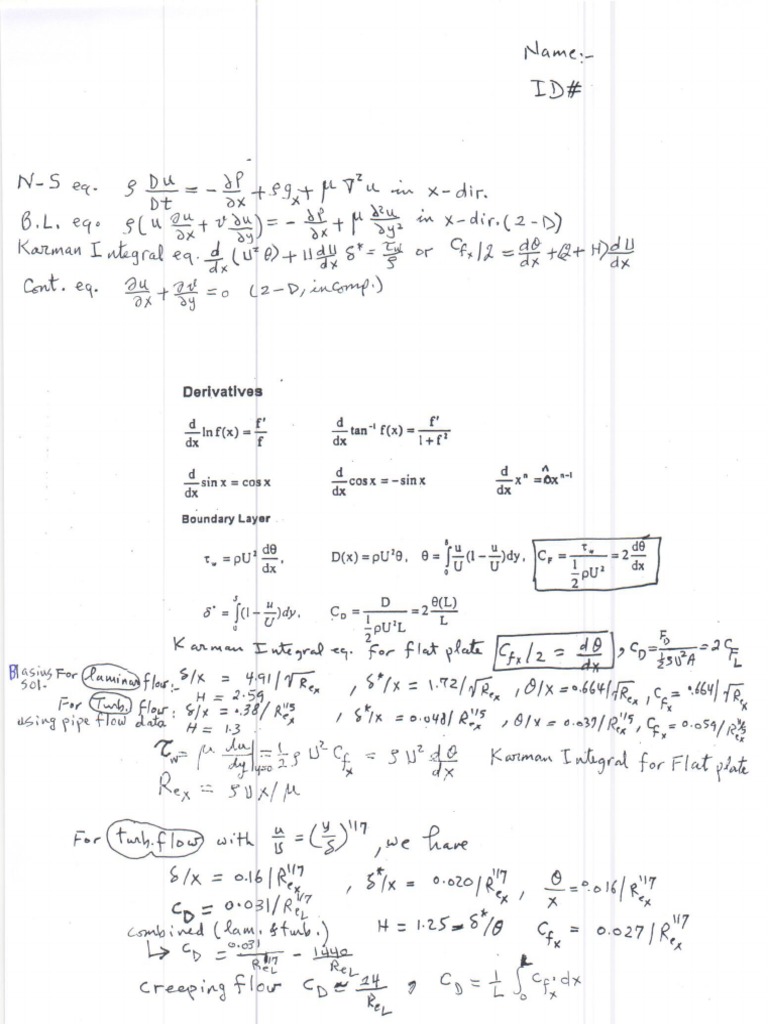 Name:-
ID#
N-S eq. ρ Du/Dt = -∂P/∂x + ρg_x + μ∇²u in x-dir.
B.L. eq. ρ(u ∂u/∂x + v ∂u/∂y) = -∂P/∂x + μ ∂²u/∂y² in x-dir. (2-D)
Karman Integral eq. d/dx (U²θ) + U dU/dx δ* = τ_w/ρ or C_fx/2 = dθ/dx + (2+H) dU/dx
Cont. eq. ∂u/∂x + ∂v/∂y = 0 (2-D, incomp.)
Derivatives
d/dx ln f(x) = f'/f d/dx tan⁻¹ f(x) = f'/(1+f²)
d/dx sin x = cos x d/dx cos x = -sin x d/dx xⁿ = nxⁿ⁻¹
Boundary Layer
τ_w = ρU² dθ/dx, D(x) = ρU²θ, θ = ∫₀^δ u/U (1 - u/U)dy, C_F = τ_w/(½ρU²) = 2 dθ/dx
δ* = ∫₀^δ (1 - u/U)dy, C_D = D/(½ρU²L) = 2 θ(L)/L
Karman Integral eq. for flat plate C_fx/2 = dθ/dx, C_D = F_D/(½ρU²A) = 2C_fL
Blasius For laminar flow:- δ/x = 4.91/√Re_x, δ*/x = 1.72/√Re_x, θ/x = 0.664/√Re_x, C_fx = .664/√Re_x
sol. H = 2.59
For Turb. flow: δ/x = .38/Re_x^1/5, δ*/x = 0.048/Re_x^1/5, θ/x = 0.037/Re_x^1/5, C_fx = 0.059/Re_x^1/5
using pipe flow data H = 1.3
τ_w = μ du/dy|_y=0 = ½ρU²C_fx = ρU² dθ/dx Karman Integral for Flat plate
Re_x = ρUx/μ
For turb. flow with u/U = (y/δ)^1/7, we have
δ/x = 0.16/Re_x^1/7, δ*/x = 0.020/Re_x^1/7, θ/x = 0.016/Re_x^1/7
C_D = 0.031/Re_L^1/7
combined (lam. & turb.) H = 1.25 = δ*/θ C_fx = 0.027/Re_x^1/7
↳ C_D = 0.031/Re_L^1/7 - 1440/Re_L
Creeping flow C_D = 24/Re_L, C_D = 1/L ∫₀^L C_fx dx